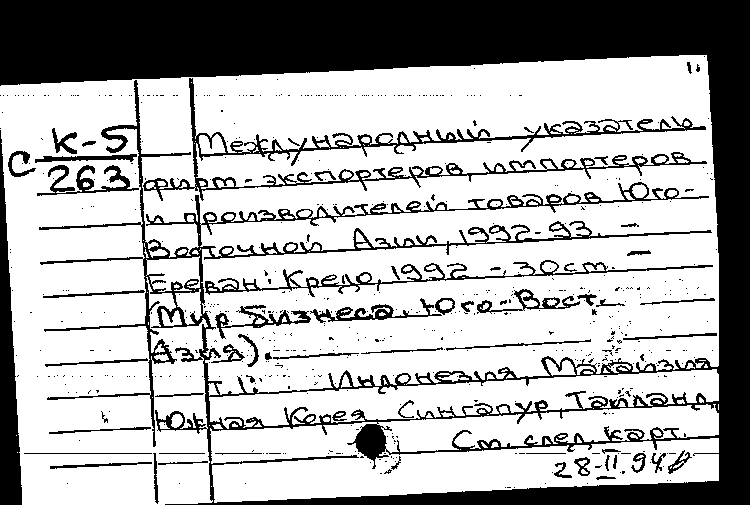 1.
К-5 Международный указатель
С
263 фирм-экспортеров, импортеров
и производителей товаров Юго-
Восточной Азии, 1992-93. —
Ереван: Кредо, 1992 - 30 ст. —
(Мир бизнеса. Юго-Вост.
Азия).
Т.1: Индонезия, Малайзия,
Южная Корея, Сингапур, Таиланд.
См. след. карт.
28-II.94